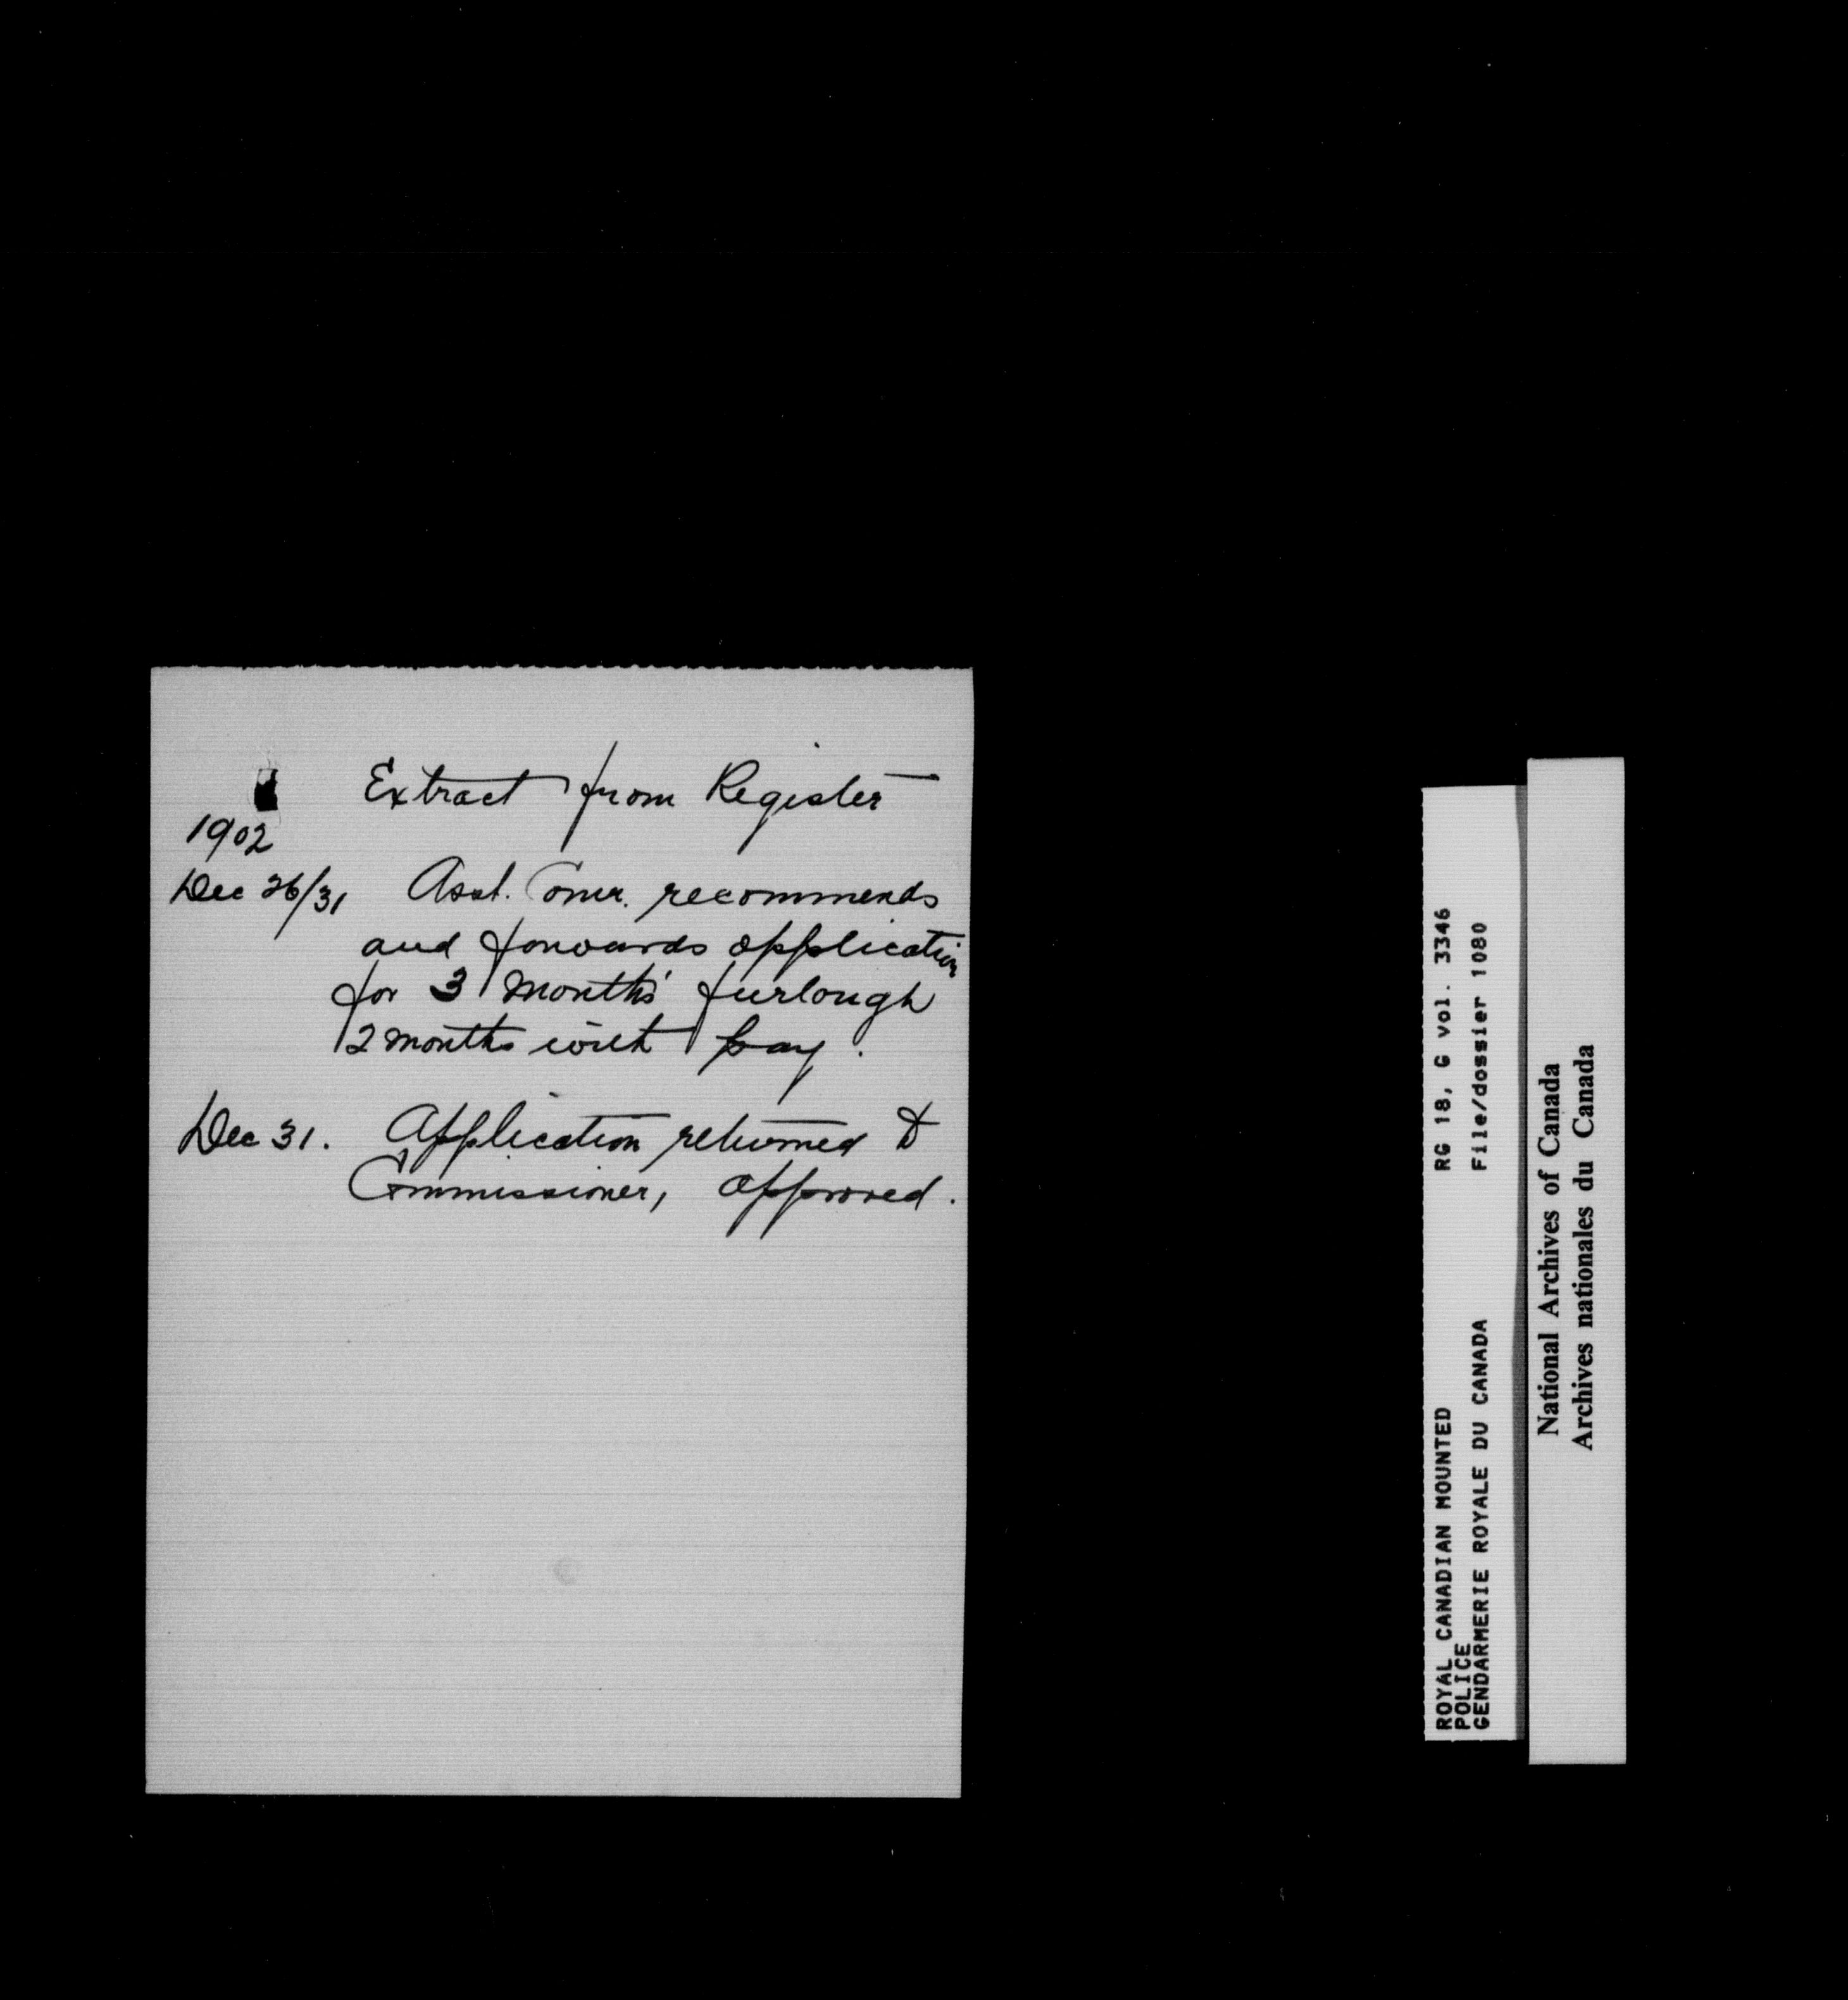 Extract from Register
1902
Dec 26/31 Asst. Comr. recommends
and forwards application
for 3 months' furlough
2 months with pay.
Dec 31. Application returned to
Commissioner, approved.
ROYAL CANADIAN MOUNTED
POLICE
GENDARMERIE ROYALE DU CANADA
RG 18, G vol. 3346
File/dossier 1080
National Archives of Canada
Archives nationales du Canada